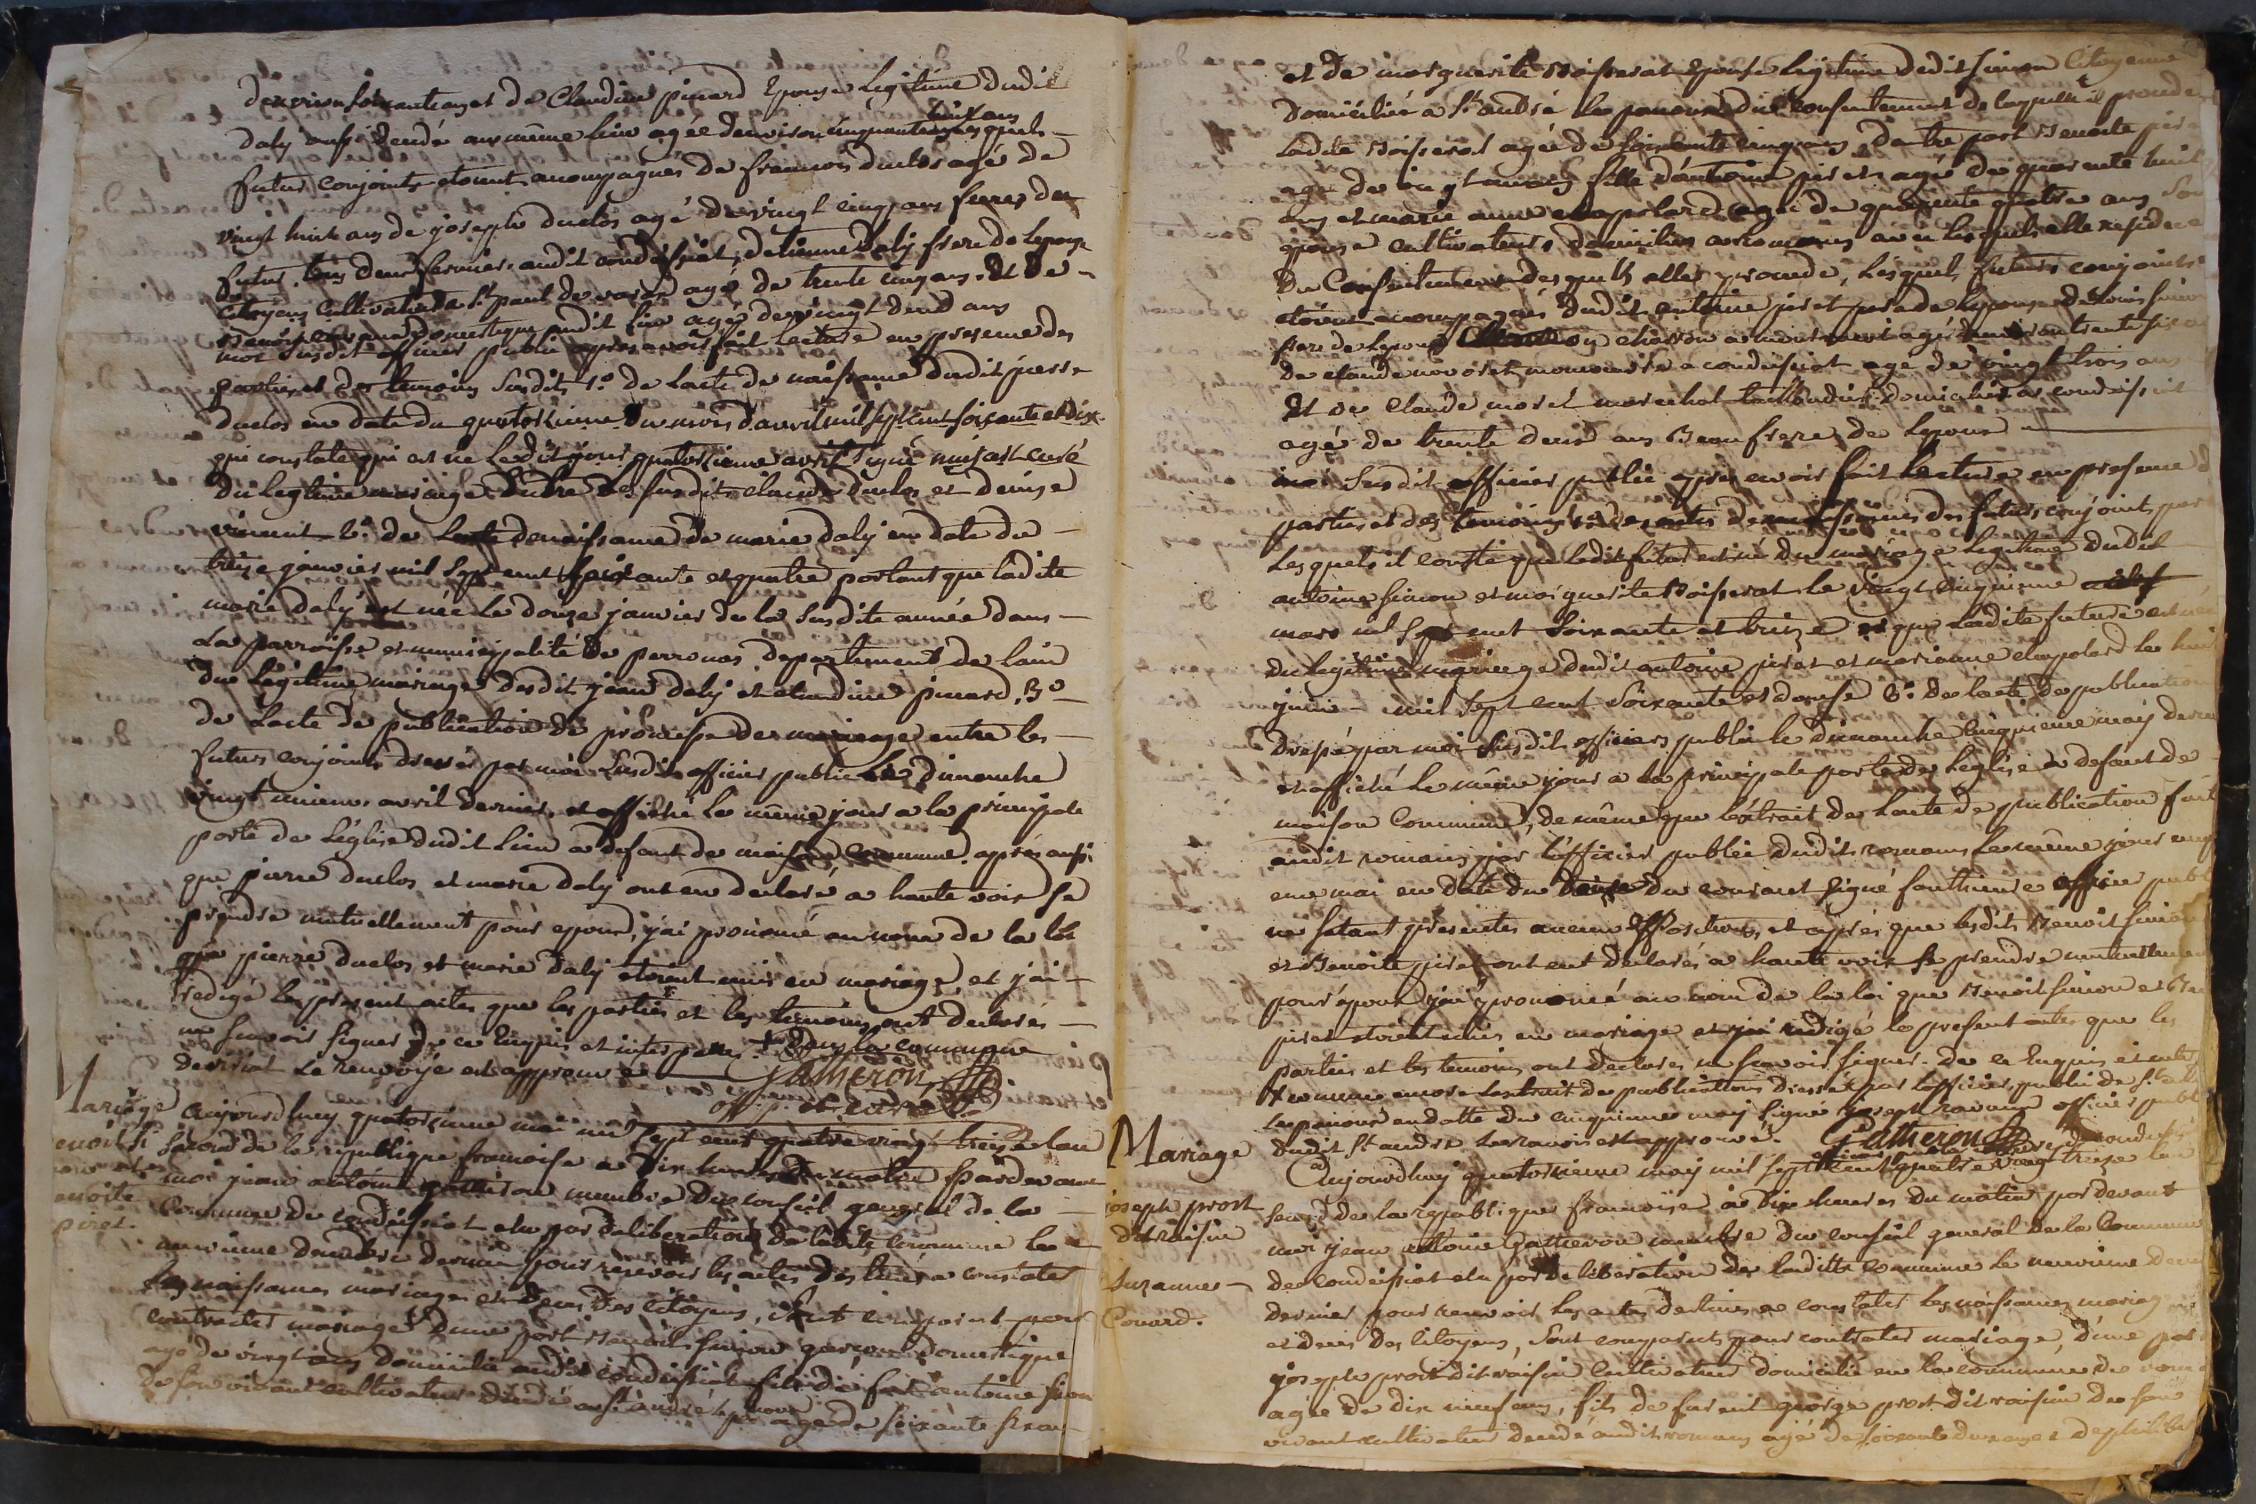 denviron soixante ans et de Claudine pinard Epouse Legitime dudit
daly aussi decedé au même lieu agée denviron cinquante huit ans lesquels
futur conjoints etoient accompagnés de francois duclos agé de
vingt huit ans de joseph duclos agé de vingt cinq ans freres du
futur tous deux fermier audit condeissiat, detienne daly frere de lepouse
Citoyens Cultivateur de St paul de varax agé de trente cinq ans. Et de
domestique audit lieu agé de vingt deux ans
moi susdit officier public apres avoir fait lecture en presence des
parties et des temoins susdits 1º de lacte de naissance dudit pierre
duclos en date du quatorzieme du mois davril mil sept cent soixante et dix
qui constate qui est né ledit jour quatorzieme avril signé curé
du legitime mariage dentre les susdits claude duclos et denise
vincent 2º de lacte de naissance de marie daly en date du
treize janvier mil sept cent soixante et quatre portant que ladite
marie daly est née le douze janvier de la susdite année dans
La parroisse et municipalité de perronas departement de lain
du legitime mariage desdit jean daly et claudine pinard, 3º
de lacte de publication de promesse de mariage entre les
futurs conjoints dressés par moi susdit officier public le dimanche
vingt unieme avril dernier, et affiché le même jour a la principale
porte de l'église dudit lieu a defaut de maison commune. après aussi
que pierre duclos et marie daly ont eu declaré a haute voix se
prendre mutuellement pour epoux, j'ai prononcé au nom de la loi
que pierre duclos et marie daly etoient unis en mariage, et j'ai
redigé le present actes que les parties et les temoins ont declarés
ne scavoir signer de ce enquis et interpellés. + dans la commune
le renvoyé est approuvé Gatheron
off. p.
Mariage
Benoit Si
mon et
Benoite
piret.
Aujourdhuy quatorzieme mai mil sept cent quatre vingt treize lan
second de la republique francoise a dix heures du matin pardevant
moi jean antoine gatheron membre du conseil general de la
commune de condeissiat elu par deliberation de ladite commune le
neuvieme decembre dernier pour recevoir les actes destinés a constater
les naissances mariages et deces des citoyens, sont comparut pour
contracter mariage dune part Benoit simon garçon domestique
agé de vingt ans domicilié audit condeissiat fils de feu antoine simon
de son vivant cultivateur decedé a St andré le panoux agé de soixante six ans
et de marguerite Boisserat Epouse legitime dudit simon Citoyenne
domiciliée a St andré le panoux du consentement de laquelle il procede
ladite Boisserat agée de soixante cinq ans, dautre part Benoite piret
agé de vingt un ans fille d'antoine piret agé de quarente huit
ans et marie anne chapolard agée de quarente quatre ans son
épouse cultivateurs domiciliés a romans avec lesquels elle reside et
du Consentement desquels elle procede, lesquels futurs conjoints
etoient accompagnés dudit antoine piret pere de lepouse
de claude a condeissiat agé de vingt trois ans
Et de Claude morel marechal taillandier domicilié a condeissiat
agés de trente deux ans Beau frere de lepoux
moi susdit officier public apres avoir fait lecture en presence d
parties et des temoins 1º des actes de naissances des futurs conjoints par
lesquels il conste que ledit futur est né du mariage legitime dudit
antoine simon et marguerite Boisserat le vingt cinquieme
mars mil sept cent soixante et treize et que ladite future est née
du legitime mariage dudit antoine piret et marianne chapolard le huit
juin mil sept cent soixante et douse 2º de lacte de publication
dressé par moi susdit officiers public le dimanche cinquieme may dernier
et affiché le même jour a la principale porte de leglise a defaut de
maison commune, de même que l'extrait de lacte de publication fait
audit romans par l'officier public dudit romans le même jour cinqui
eme mai en date du du courant signé officier publ
ne setant presentés aucune oppositions, et après que lesdits Benoit simon
et Benoite piret ont eut declarés a haute voix se prendre mutuellement
pour épour j'ai prononcé au nom de la loi que Benoit simon et Be
piret etoient unis en mariage et jai redigé le present actes que les
parties et les temoins ont declares ne scavoir signer. de ce enquis et inter
+ comme encore lextrait de publications dressé par l'officier public de St andre
le panoux en datte du cinquieme may signé joseph officier publ
dudit St andré le renvois est approuvé. Gatheron
Mariage
joseph prost
dit raisin
Suzanne
Convard.
Aujourdhuy quatorzieme may mil sept cent quatre vingt treize lan
second de la republique francoise a dix heures du matin par devant
moi jean antoine Gatheron membre du conseil general de la Commune
de condeissiat elu par deliberation de laditte commune le neuvieme decem
dernier pour recevoir les actes destinés a constater les naissances mariag
et deces des Citoyens, sont comparuts pour contracter mariage, d'une part
joseph prost dit raisin cultivateur domicilié en la commune de romans
agée de dix neuf ans, fils de furent george prost dit raisin de son
vivant cultivateur decedé audit romans agé de soixante